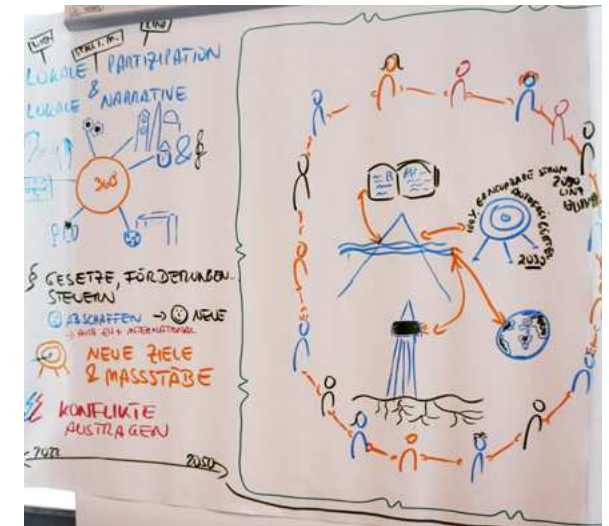 LINZ
STMK I. M.
LOKALE PARTIZIPATION
&
LOKALE NARRATIVE
360°
& §
§ GESETZE, FÖRDERUNGEN
STEUERN
ABSCHAFFEN → NEUE
→ AUCH EU + INTERNATIONAL
NEUE ZIELE
& MASSSTÄBE
KONFLIKTE
AUSTRAGEN
2022 2050
100% ERNEUERBARE STROM
2030
2030